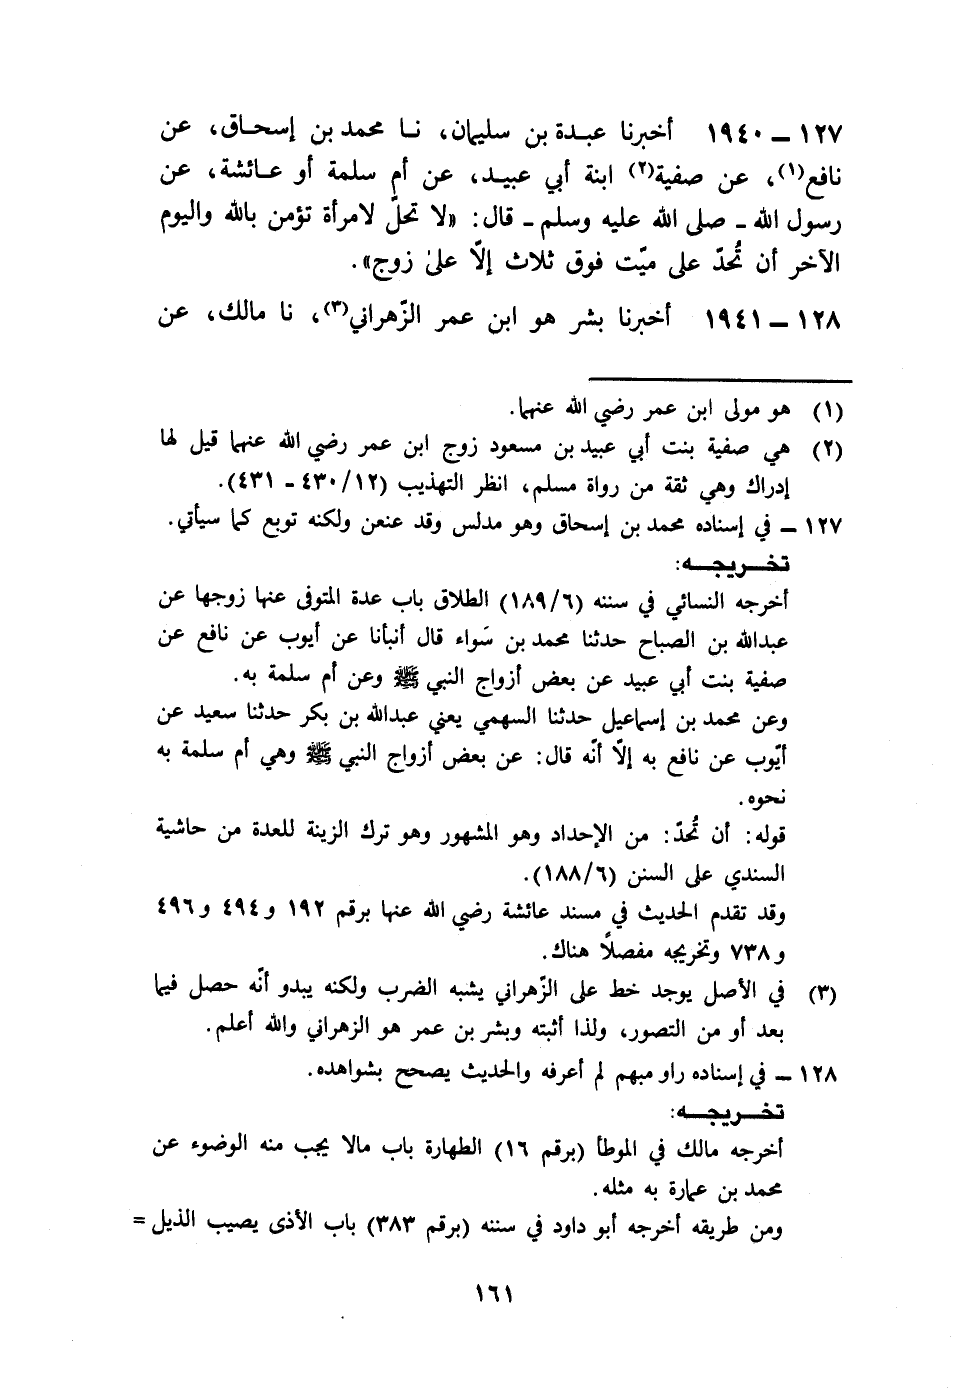 ١٢٧ ـ ١٩٤٠ أخبرنا عبدة بن سليمان، نا محمد بن إسحاق، عن
نافع(١)، عن صفية(٢) ابنة أبي عبيد، عن أم سلمة أو عائشة، عن
رسول الله ـ صلى الله عليه وسلم ـ قال: «لا تحلّ لامرأة تؤمن بالله واليوم
الآخر أن تُحدّ على ميّت فوق ثلاث إلّا علىٰ زوج».
١٢٨ ـ ١٩٤١ أخبرنا بشر هو ابن عمر الزّهراني(٣)، نا مالك، عن
(١) هو مولى ابن عمر رضي الله عنهما.
(٢) هي صفية بنت أبي عبيد بن مسعود زوج ابن عمر رضي الله عنهما قيل لها
إدراك وهي ثقة من رواة مسلم، انظر التهذيب (١٢/ ٤٣٠ ـ ٤٣١).
١٢٧ ـ في إسناده محمد بن إسحاق وهو مدلس وقد عنعن ولكنه توبع كما سيأتي.
تخـريجـه:
أخرجه النسائي في سننه (٦/ ١٨٩) الطلاق باب عدة المتوفى عنها زوجها عن
عبدالله بن الصباح حدثنا محمد بن سَواء قال أنبأنا عن أيوب عن نافع عن
صفية بنت أبي عبيد عن بعض أزواج النبي ﷺ وعن أم سلمة به.
وعن محمد بن إسماعيل حدثنا السهمي يعني عبدالله بن بكر حدثنا سعيد عن
أيّوب عن نافع به إلّا أنّه قال: عن بعض أزواج النبي ﷺ وهي أم سلمة به
نحوه.
قوله: أن تُحدّ: من الإحداد وهو المشهور وهو ترك الزينة للعدة من حاشية
السندي على السنن (٦/ ١٨٨).
وقد تقدم الحديث في مسند عائشة رضي الله عنها برقم ١٩٢ و ٤٩٤ و ٤٩٦
و ٧٣٨ وتخريجه مفصلاً هناك.
(٣) في الأصل يوجد خط على الزّهراني يشبه الضرب ولكنه يبدو أنّه حصل فيما
بعد أو من التصور، ولذا أثبته وبشر بن عمر هو الزهراني والله أعلم.
١٢٨ ـ في إسناده راو مبهم لم أعرفه والحديث يصحح بشواهده.
تخـريجـه:
أخرجه مالك في الموطأ (برقم ١٦) الطهارة باب مالا يجب منه الوضوء عن
محمد بن عمارة به مثله.
ومن طريقه أخرجه أبو داود في سننه (برقم ٣٨٣) باب الأذى يصيب الذيل =
١٦١